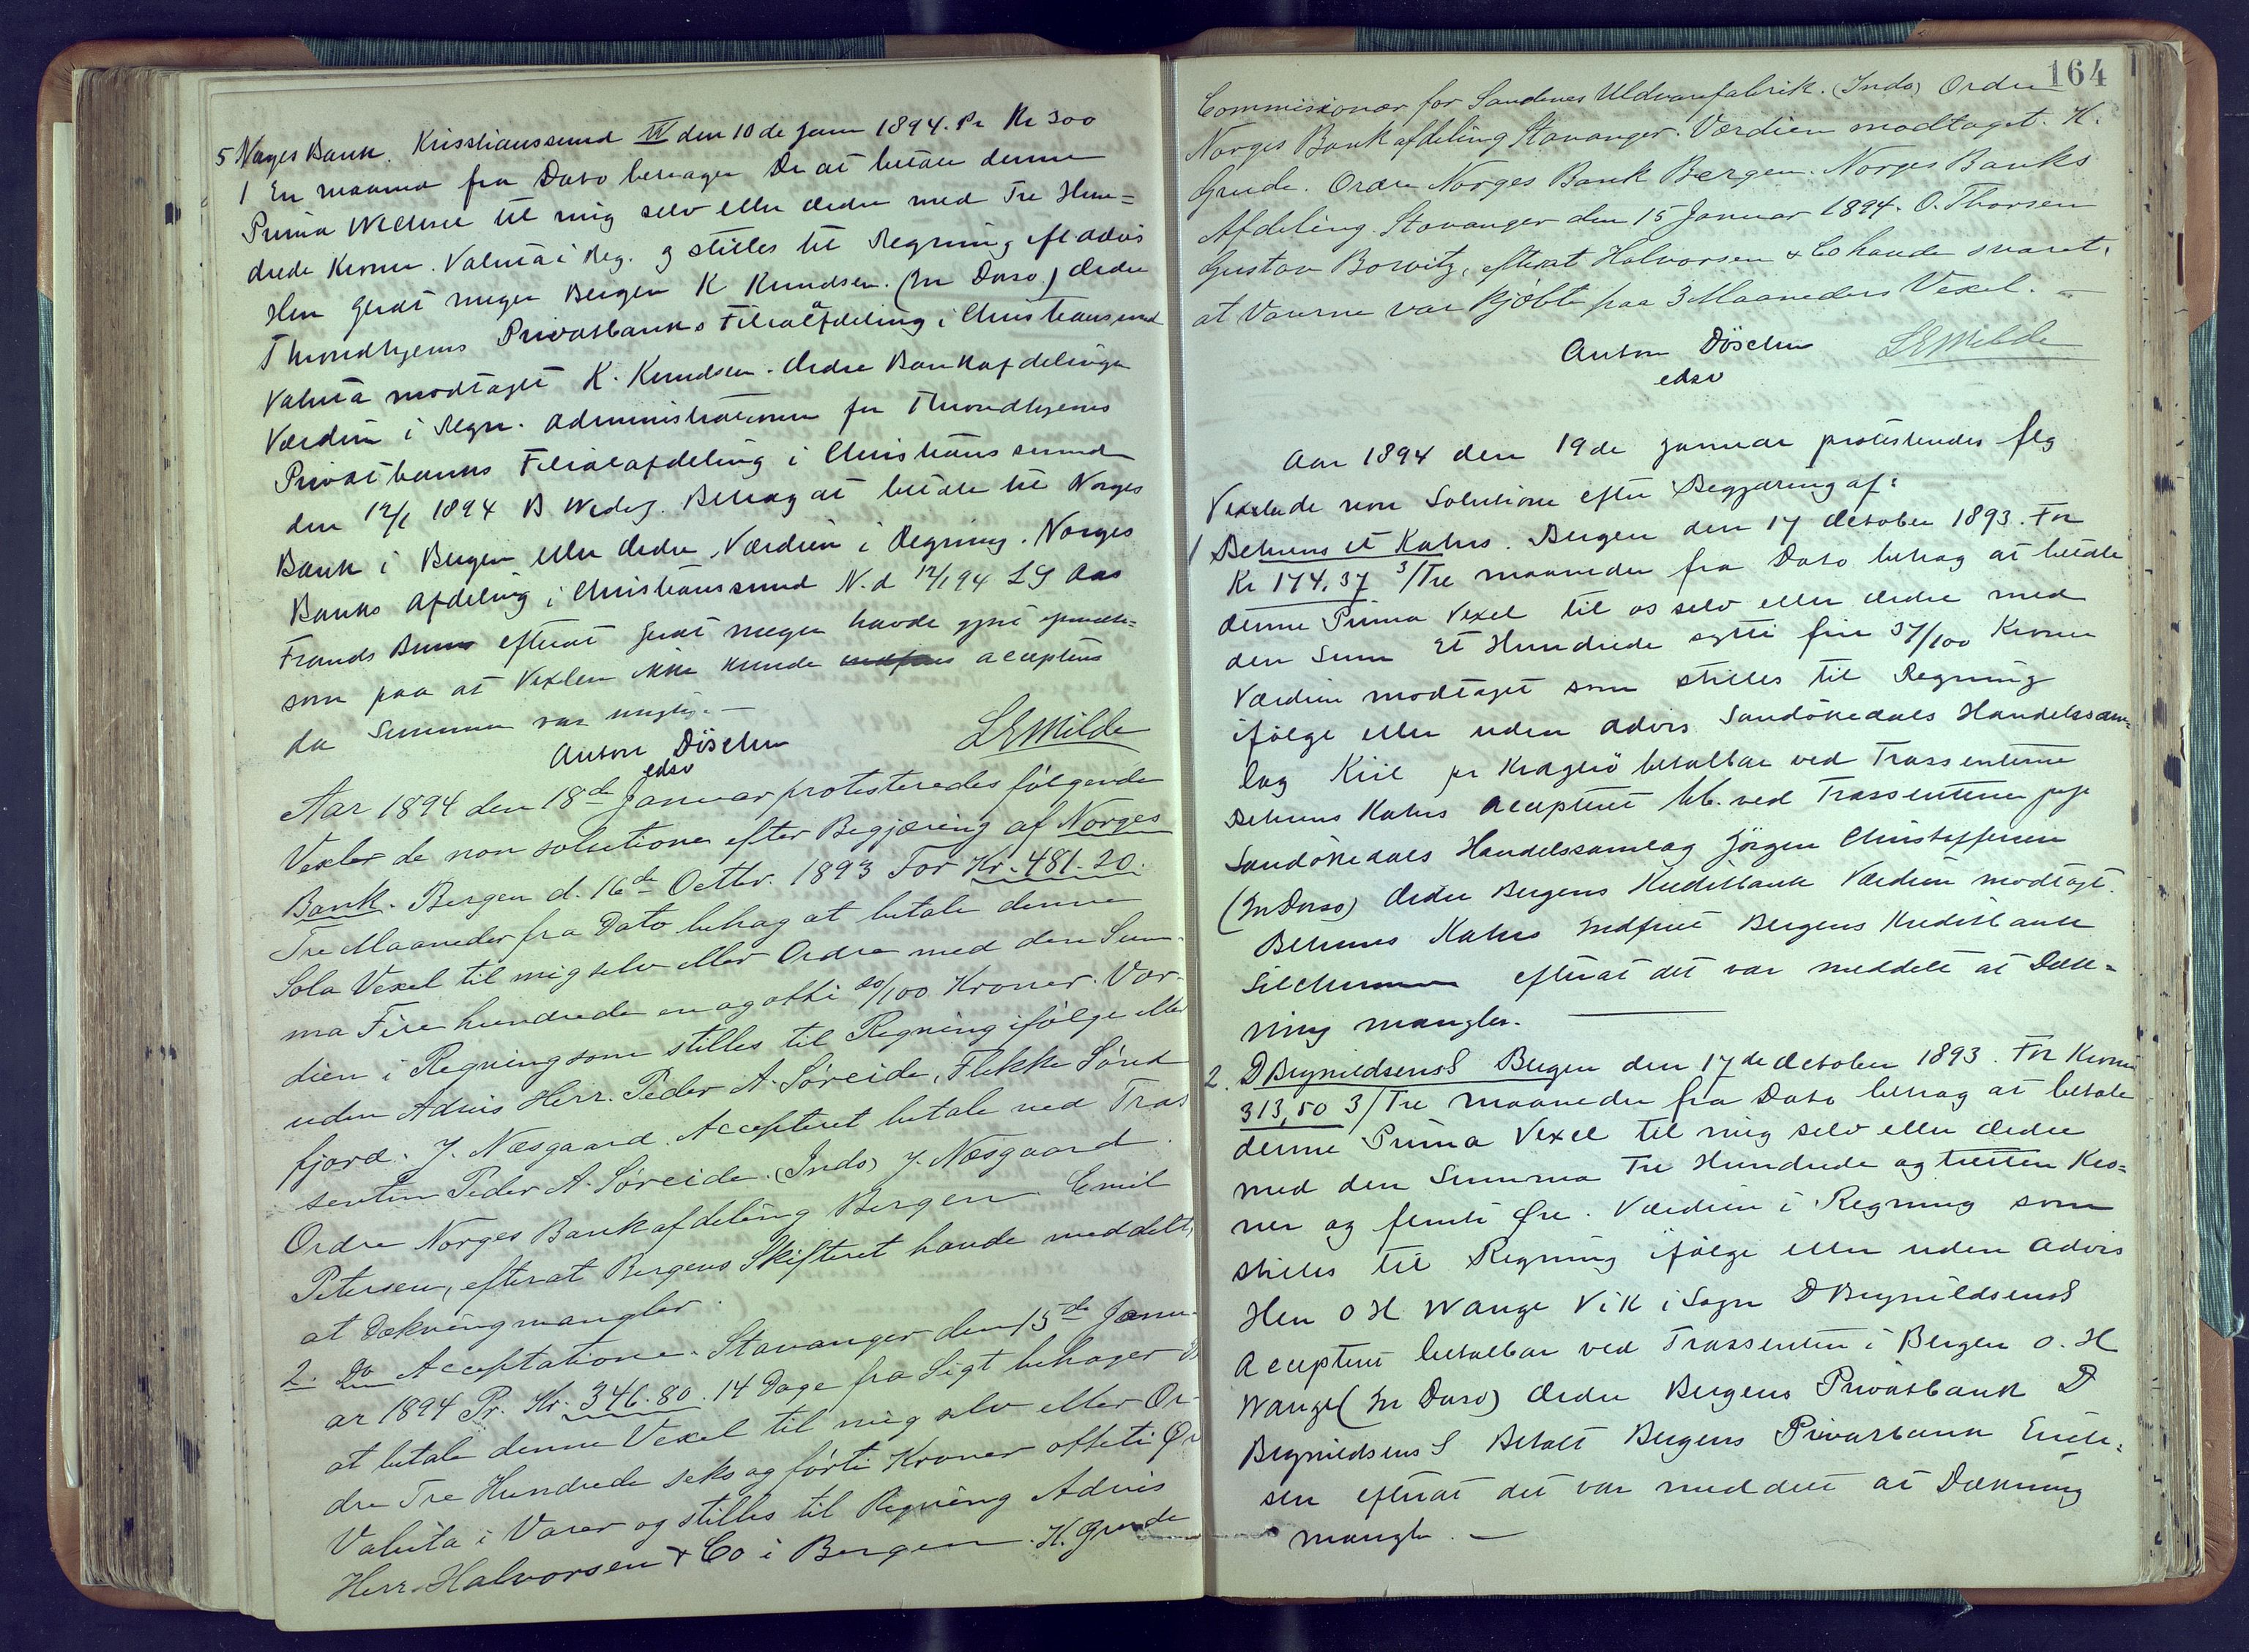 5 Norges Bank. Krisstianssund N den 10de Janu 1894. Pr Kr 300
1 En maaned fra Dato behager De at betale denne
Prima Wechsel til mig selv eller Ordre med Tre Hun=
drede Kroner. Valuta i Reg. og stilles til Regning eft advis
Herr Gerdt Bergen K Knudsen. (In Dorso) Ordre
Throndhjems Privatbanks Filialafdeling i Christianssund
Valuta modtaget K. Knudsen. Ordre Bankafdelingen
Værdien i Regn. Administrationen for Throndhjems
Privatbanks Filialafdeling i Christianssund
den 12/1 1894 B Betrag at betale til Norges
Bank i Bergen eller Ordre, Værdien i Regning. Norges
Banks Afdeling i Christianssund N. d 12/1 94 Aas
Frands efterat Gerdt havde
som paa at Vexlen ikke kunde accepteres
da Summen var
Anton Döscher LEMilde
edsv
Aar 1894 den 18de Januar protesteredes følgende
Vexler de non solutione efter Begjæring af Norges
Bank. Bergen d. 16de Octbr. 1893 For Kr. 481.20.
Tre Maaneder fra Dato behag at betale denne
Sola Vexel til mig selv eller Ordre med den Sum-
ma Fire hundrede en og otti 20/100 Kroner. Vær-
dien i Regning som stilles til Regning ifølge eller
uden Advis Herr. Peder A. Søreide, Flekke Sønd
fjord. J. Næsgaard. Accepteret betale ved Tras
senten Peder A. Søreide. (Indo) J. Næsgaard.
Ordre Norges Bankafdeling Bergen. Emil
Petersen, efterat Bergens Skifteret havde meddelt,
at Dækning mangler.
2. Do Acceptatione. Stavanger den 15de Janu-
ar 1894 Pr. Kr. 346.80. 14 Dage fra Sigt behager D
at betale denne Vexel til mig selv eller Or-
dre Tre Hundrede seks og førti Kroner otteti Ør
Valuta i Varer og stilles til Regning Advis
Herr. Halvorsen & Co i Bergen. H. Grude
164
Commissionær for Sandnes Uldvarefabrik. (Indo) Ordre
Norges Bank afdeling Stavanger. Værdien modtaget. H.
Grude. Ordre Norges Bank Bergen. Norges Banks
Afdeling Stavanger den 15 Januar 1894. O. Thorsen
Gustav Borwitz, efterat Halvorsen & Co havde svaret,
at Varerne var kjøbte paa 3 Maaneders Vexel. —
Anton Döscher LEMilde
edsv
Aar 1894 den 19de januar protesteredes flg
Vexler de non Solutione efter Begjæring af:
1 Behrens et Kahrs. Bergen den 17 October 1893. For
Kr 174,37 3/Tre maaneder fra Dato behag at betale
denne Prima Vexel til os selv eller Ordre med
den Sum Et Hundrede sytti fire 37/100 Kroner
Værdien modtaget som stilles til Regning
ifølge eller uden advis Sandökedals Handelssam=
lag Kiil pr Kragerø betalbar ved Trassenterne
Behrens Kahrs Accepteret bb. ved Trassenterne
Sandökedals Handelssamlag Jörgen Christoffersen
(In Dorso) Ordre Bergens Kreditbank Værdien modtagt.
Behrens Kahrs Indfriet Bergens Kreditbank
efterat det var meddelt at Dæk=
ning mangler.
2. D Brynildsens S Bergen den 17de October 1893. For Kroner
313,50 3/Tre maaneder fra Dato behag at betale
denne Prima Vexel til mig selv eller Ordre
med den Summa Tre Hundrede og tretten Kro=
ner og femti Øre. Værdien i Regning som
stilles til Regning ifølge eller uden Advis
Herr O H Wange Vik i Sogn D Brynildsens S
Accepteret betalbar ved Trassenten i Bergen O. H
Wange (In Dorso) Ordre Bergens Privatbank D
Brynildsens S Betalt Bergens Privatbank Erich=
sen efterat det var meddelt at Dækning
mangler. —